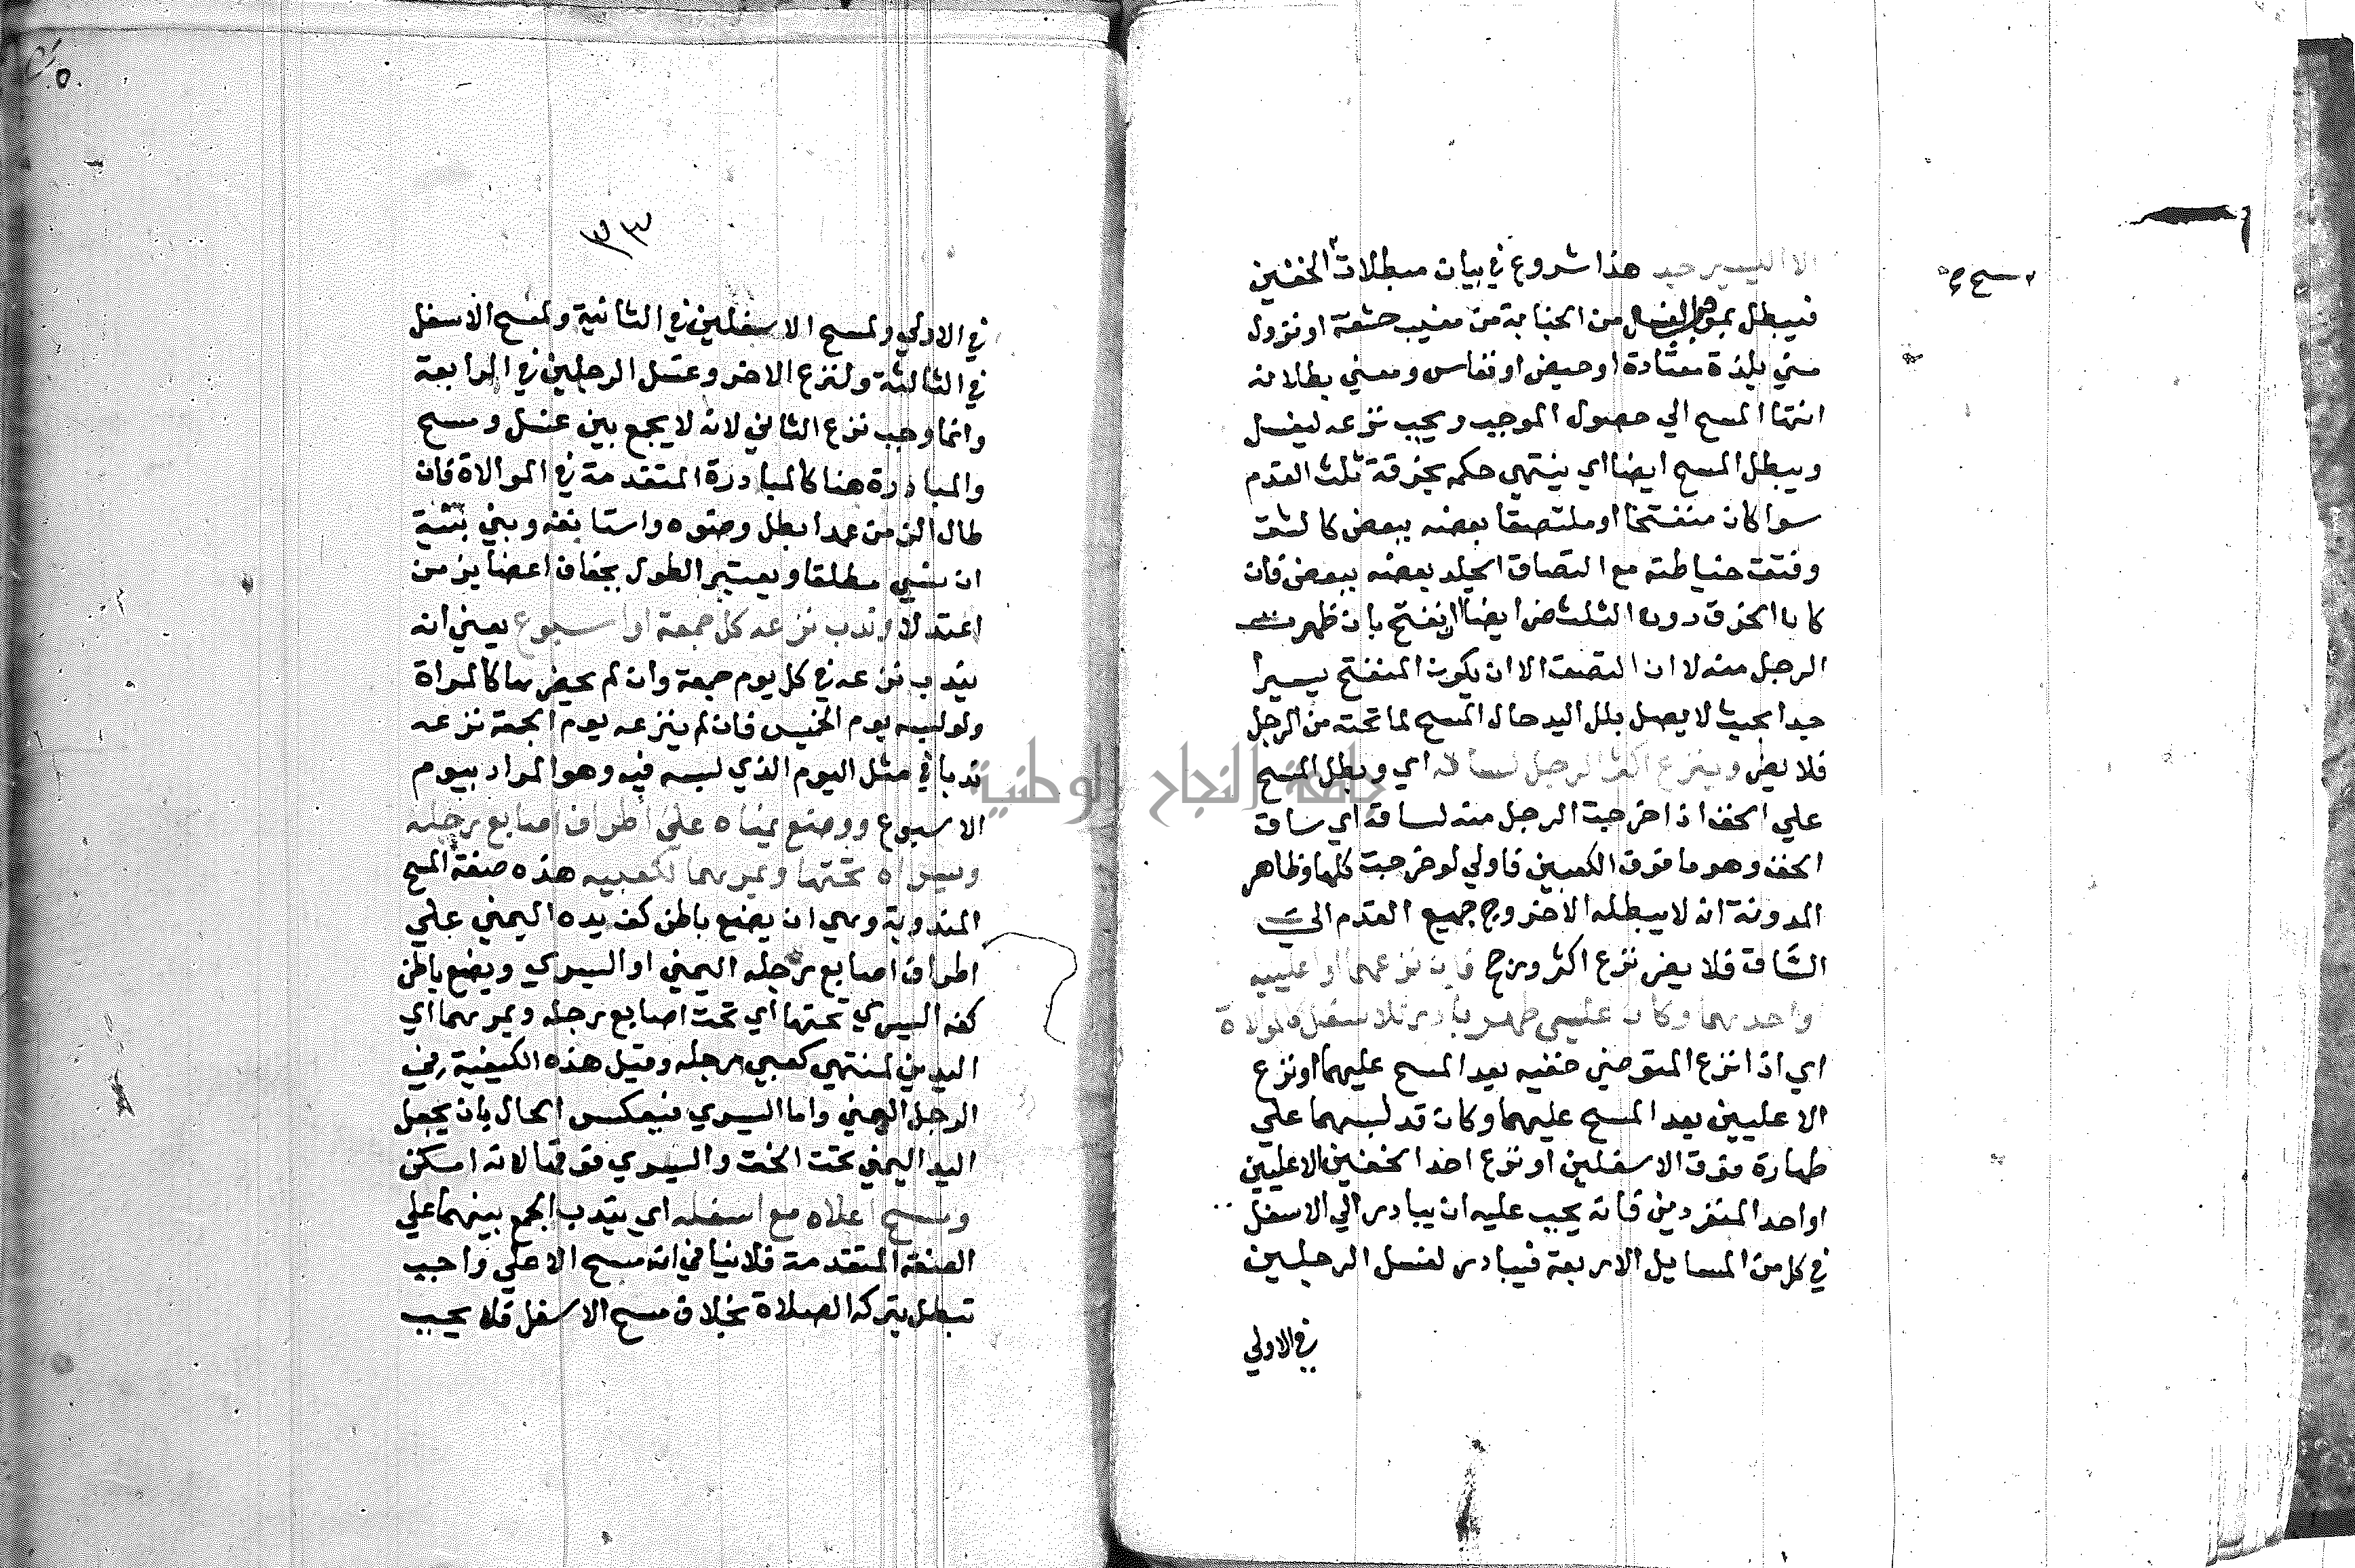 الا اليسير جدا هذا شروع في بيان مبطلات الخفين
مسح صح
فيبطل بموجب الغسل من الجنابة من مغيب حشفة او نزول
مني بلذة معتادة او حيض او نفاس ومعني بطلانه
انتها المسح الي حصول الموجب ويجب نزعه ليغسل
ويبطل المسح ايضا اي ينتهي حكمه بخرقة ثلث القدم
سوا كان منفتخا او ملتصقا بعضه ببعض كالشق
وفتق خياطته مع التصاق الجلد بعضه ببعض فان
كان الخرق دون الثلث ضر ايضا ان نفتح بان ظهرت
الرجل منه لا ان التصق الا ان يكون المنفتح يسيرا
جدا بحيث لا يصل بلل اليد حال المسح لما تحته من الرجل
فلا يضر وبنزع اكثر الرجل لساقه اي وبطل المسح
علي الخف اذا خرجت الرجل منه لساقه اي ساق
الخف وهو ما فوق الكعبين فاولي لو خرجت كلها وظاهر
المدونة انه لا يبطله الا خروج جميع القدم الي
الساق فلا يضر نزع اكثر ورجح فان نزعهما او اعلييه
او احدهما وكان علي طهر بادر للاسفل كالموالاة
اي اذا نزع المتوضي خفيه بعد المسح عليهما او نزع
الاعليين بعد المسح عليهما وكان قد لبسهما علي
طهارة فوق الاسفلين او نزع احد الخفين الاعليين
او احد المنفردين فانه يجب عليه ان يبادر الي الاسفل
في كل من المسايل الاربعة فيبادر لغسل الرجلين
في الاولي
٣٣
في الاولي ولمسح الاسفلين في الثانية ولمسح الاسفل
في الثالثة ولنزع الاخر وغسل الرجلين في الرابعة
وانما وجب نزع الثاني لانه لا يجمع بين غسل ومسح
والمبادرة هنا كالمبادرة المتقدمة في الموالاة فان
طال الزمن عمدا بطل وضوه واستانفه وبني بنية
ان نسي مطلقا ويعتبر الطول بجفاف اعضا بزمن
اعتدلا وندب نزعه كل جمعة او اسبوع يعني انه
يندب نزعه في كل يوم جمعة وان لم يحضرها كالمراة
ولو لبسه يوم الخميس فان لم ينزعه يوم الجمعة نزعه
ندبا في مثل اليوم الذي لبسه فيه وهو المراد بيوم
الاسبوع ووضع يمناه علي اطراف اصابع رجله
ويسراه تحتها ويمرهما لكعبيه هذه صفة المسح
المندوبة وهي ان يضع باطن كف يده اليمني علي
اطراف اصابع رجله اليمني او اليسري ويضع باطن
كفه اليسري تحتها اي تحت اصابع رجله ويمرهما اي
اليدين لمنتهي كعبي رجله وقيل هذه الكيفية في
الرجل اليمني واما اليسري فبعكس الحال بان يجعل
اليد اليمني تحت الخف واليسري فوقها لانه امكن
ومسح اعلاه مع اسفله اي يندب الجمع بينهما علي
الصفة المتقدمة فلا ينافي انه مسح الاعلي واجب
تبطل بتركه الصلاة بخلاف مسح الاسفل فلا يجب
جامعة النجاح الوطنية